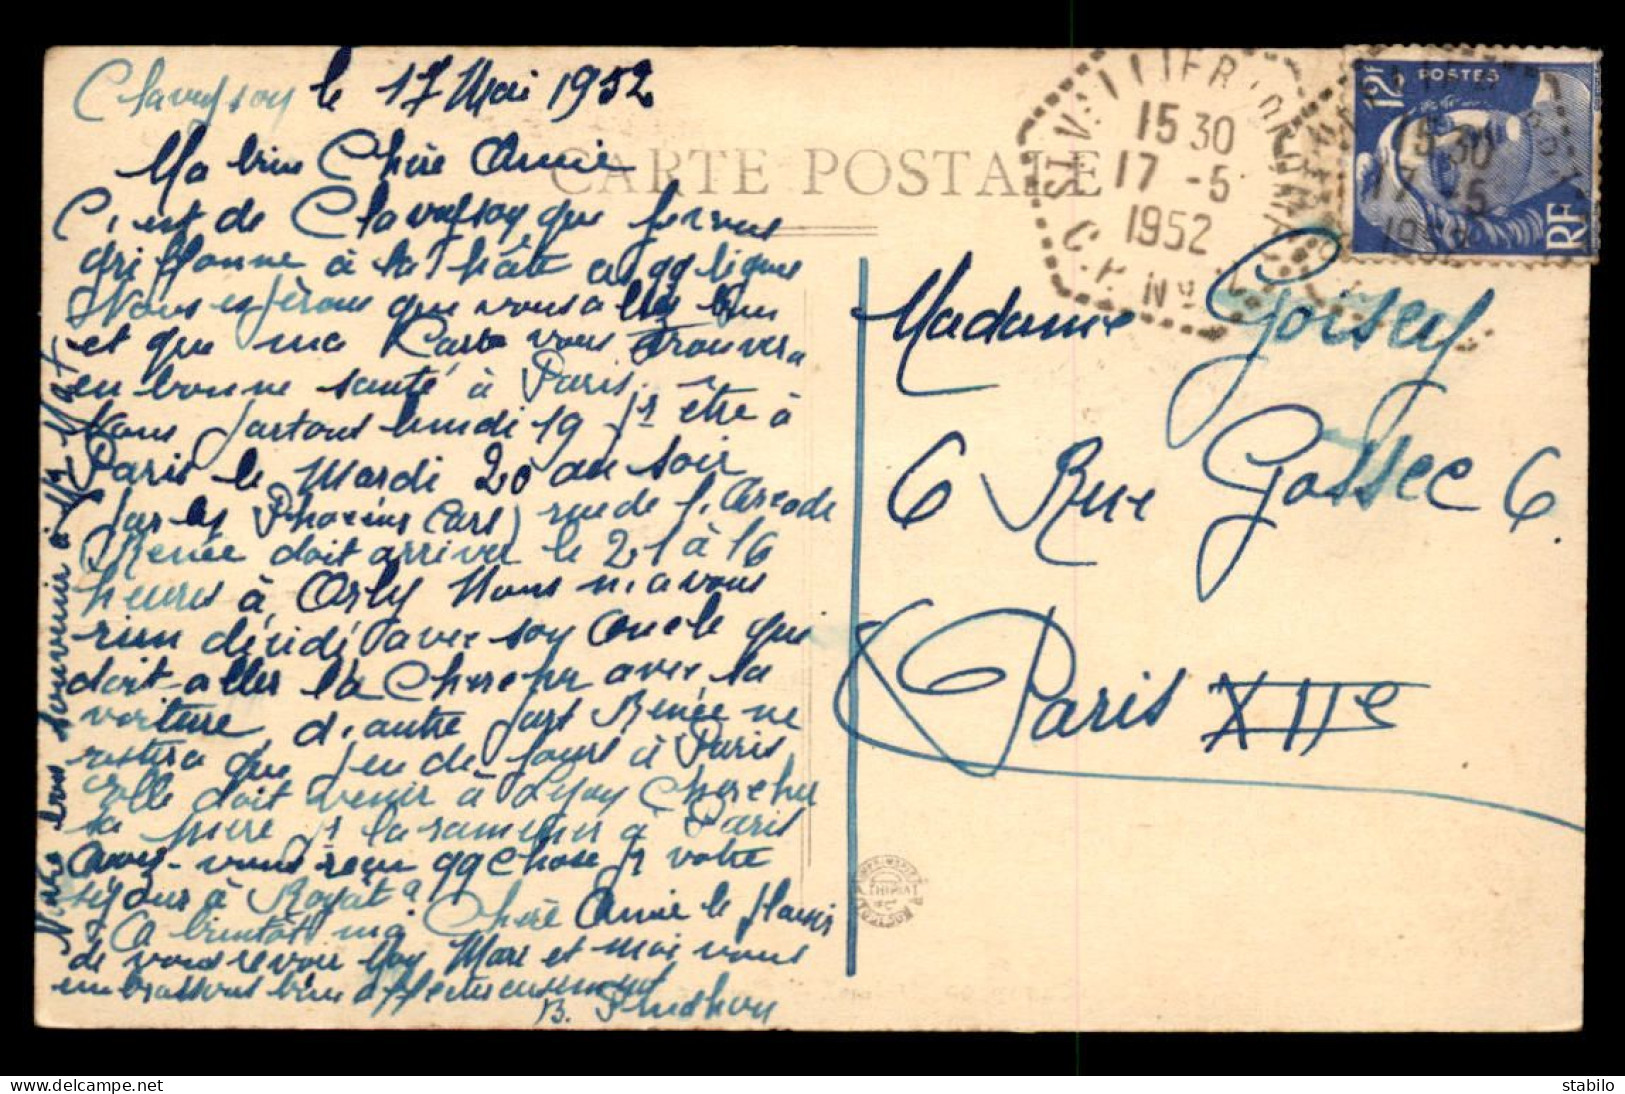 Claveyson le 17 Mai 1952
Ma bien Chère Amie
C'est de Claveyson que je vous
griffonne à la hâte ces qq lignes
Nous espérons que vous allez bien
et que ma Carte vous trouvera
en bonne santé à Paris.
Nous partons lundi 19 pr être à
Paris le Mardi 20 au soir
par les Phocéens Cars) rue de l'Arcade
Renée doit arriver le 21 à 16
heures à Orly Nous n'avons
rien décidé avec son Oncle qui
doit aller la Chercher avec la
voiture d'autre part Renée ne
restera que peu de jours à Paris
Elle doit venir à Lyon Chercher
sa mère pr la ramener à Paris
Avez-vous reçu qq chose pr votre
séjour à Royat?
A bientôt ma Chère Amie le plaisir
de vous revoir Mon Mari et moi vous
embrassons bien affectueusement
B. Prudhon
Notre bon souvenir à
CARTE POSTALE
ST VALLIER (DROME)
15 30
17 -5
1952
C.P. No
12F
POSTES
RF
15 30
17 -5
1952
Madame Goisey
6 Rue Gossec 6.
Paris XIIe
stabilo